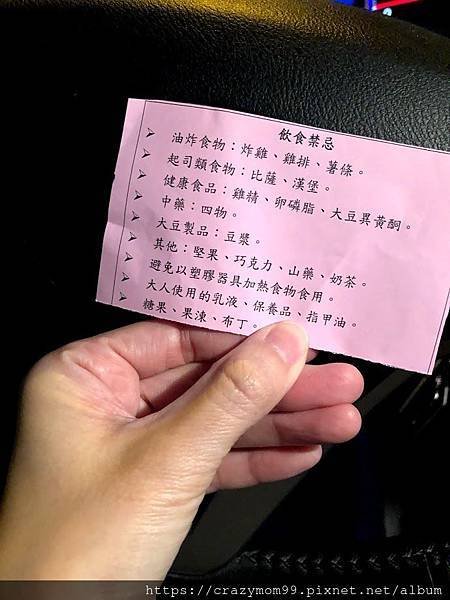 飲食禁忌
➢ 油炸食物：炸雞、雞排、薯條。
➢ 起司類食物：比薩、漢堡。
➢ 健康食品：雞精、卵磷脂、大豆異黃酮。
➢ 中藥：四物。
➢ 大豆製品：豆漿。
➢ 其他：堅果、巧克力、山藥、奶茶。
➢ 避免以塑膠器具加熱食物食用。
➢ 大人使用的乳液、保養品、指甲油。
➢ 糖果、果凍、布丁。
https://crazymom99.pixnet.net/album